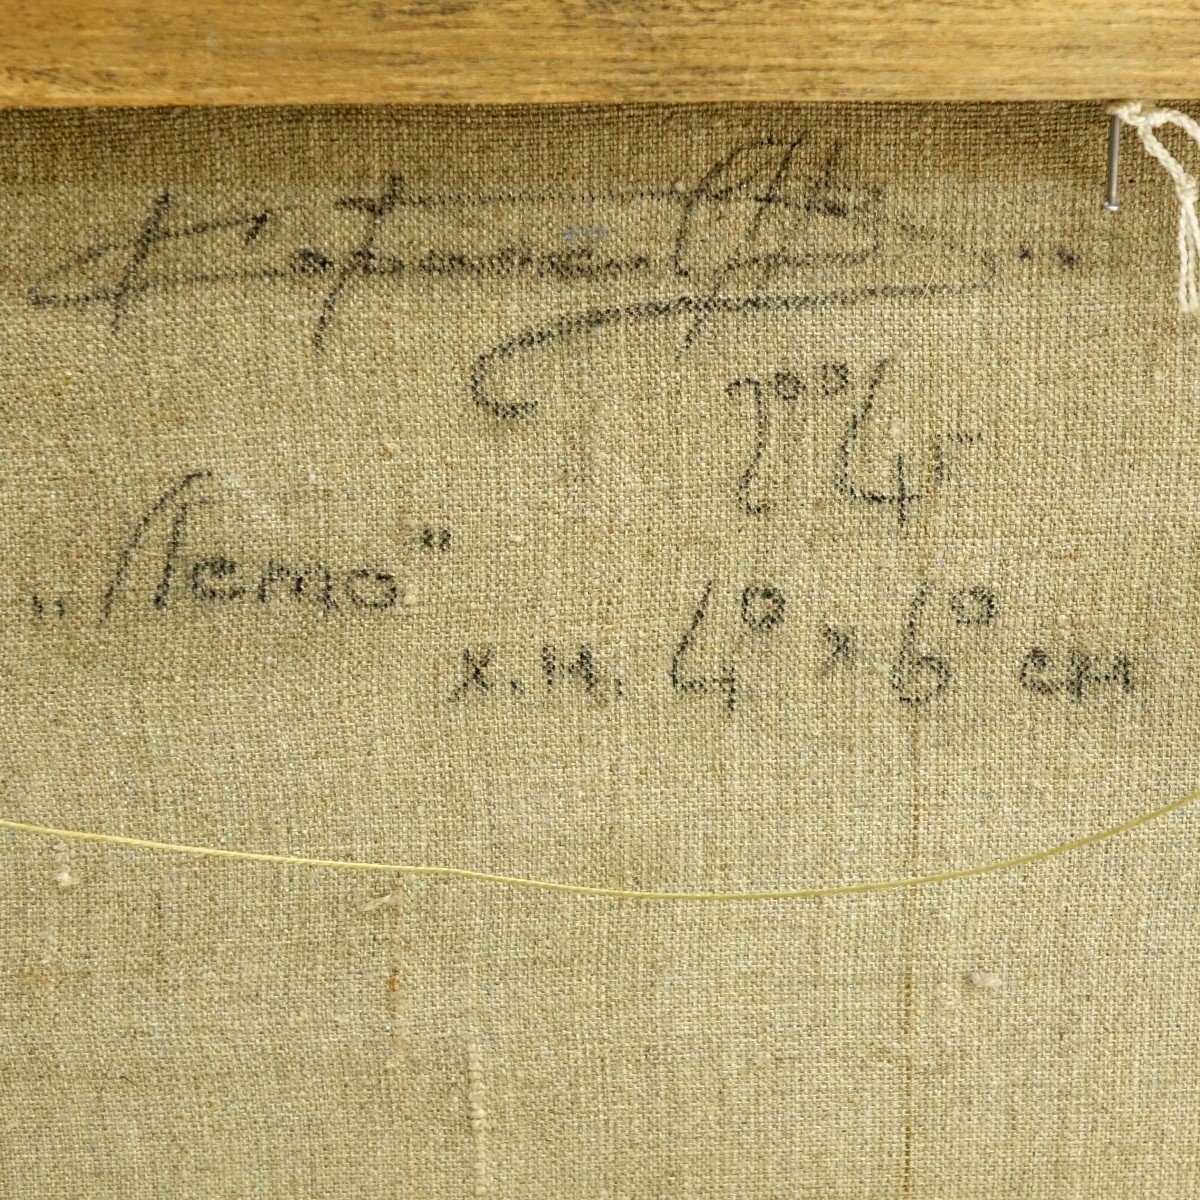 2004г
„Лето"
х.м. 40 х 60 см